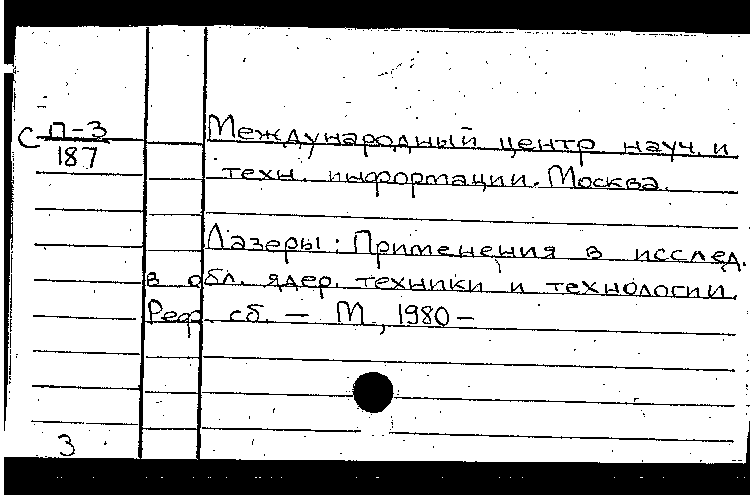 С П-3
187
Международный центр науч. и
техн. информации. Москва.
Лазеры: Применения в исслед.
в обл. ядер. техники и технологии.
Реф. сб. — М, 1980 —
3